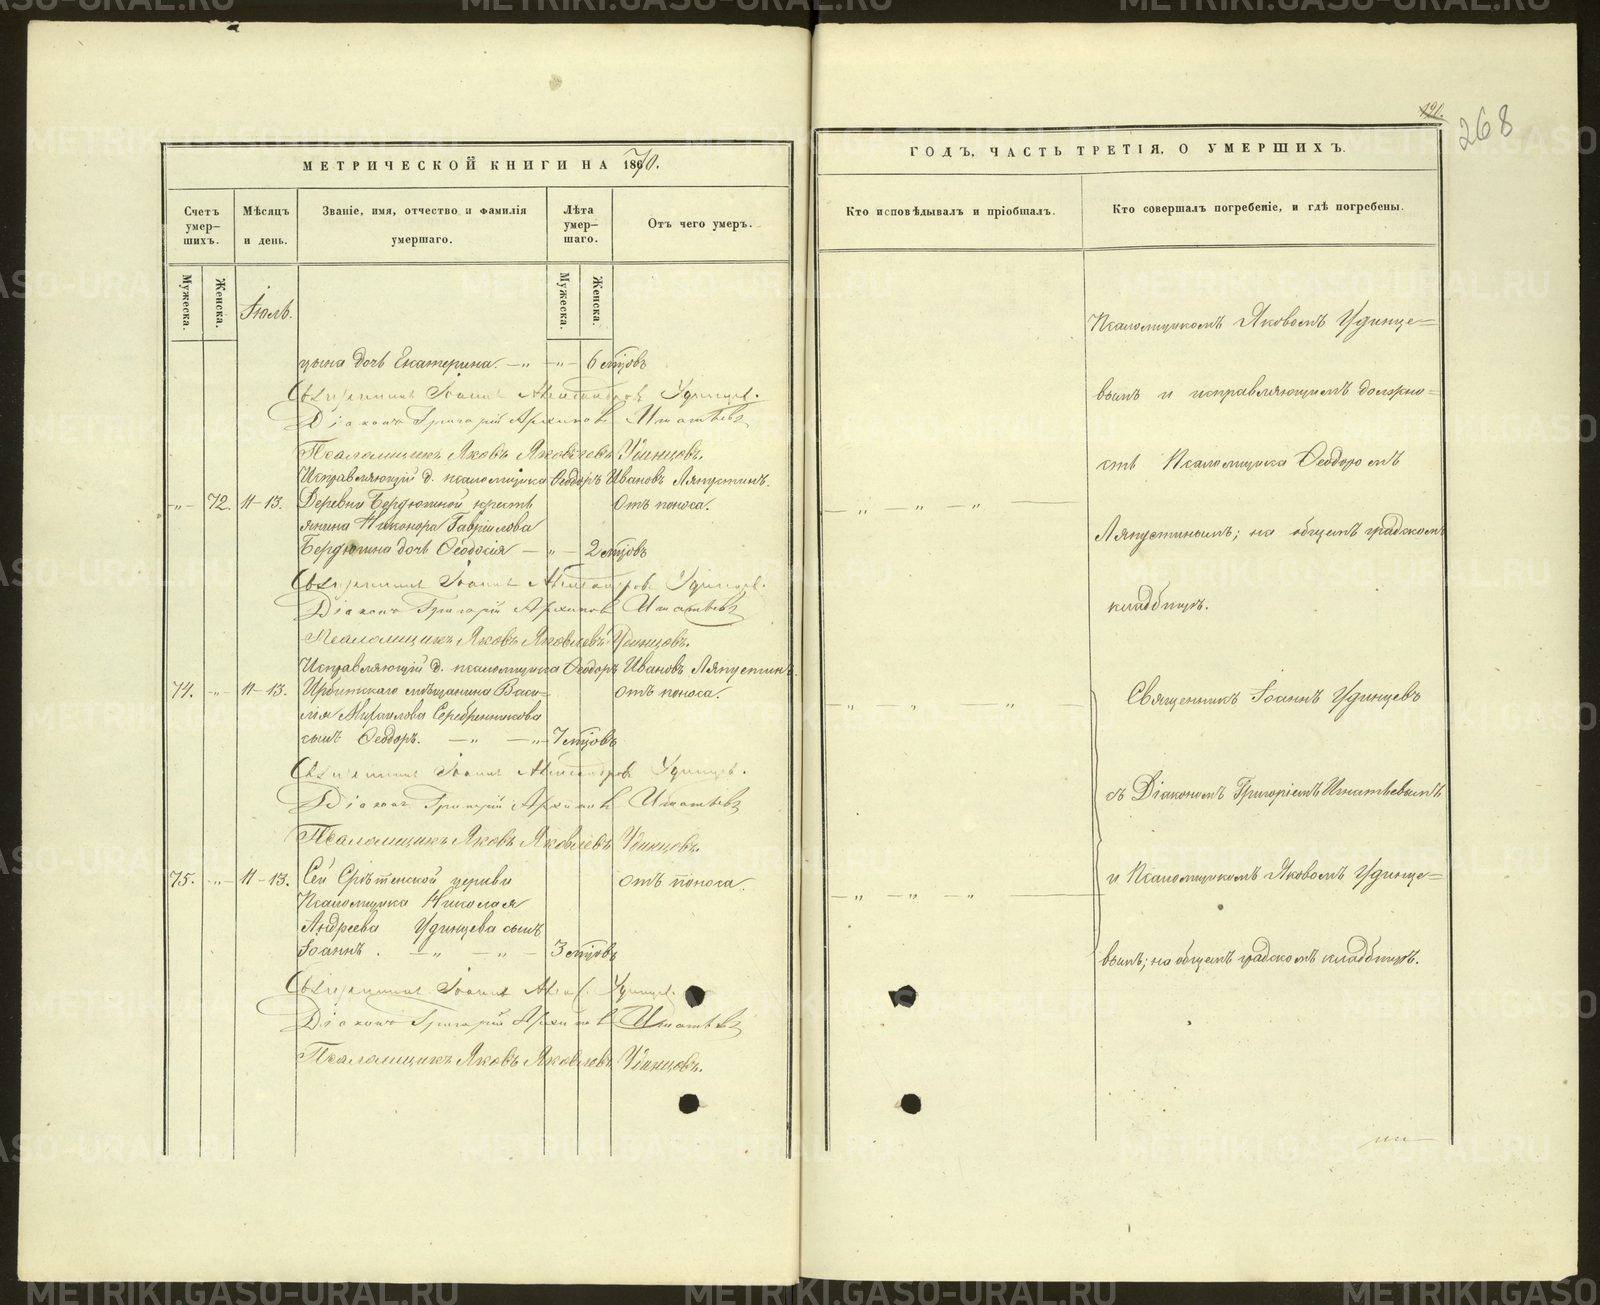 МЕТРИЧЕСКОЙ КНИГИ НА 1870.
Счетъ умер-шихъ.
Мѣсяцъ и день.
Званіе, имя, отчество и фамилія умершаго.
Лѣта умер-шаго.
Отъ чего умеръ.
Мужеска.
Женска.
Мужеска.
Женска.
Іюль.
цына дочь Екатерина. — „ — „ — 6 мцовъ
Священникъ Іоаннъ Александровъ Удинцев.
Діаконъ Григорій Архиповъ Игнатьевъ
Псаломщикъ Яковъ Яковлевъ Удинцовъ.
Исправляющій д. псаломщика Ѳеодоръ Ивановъ Ляпустинъ.
— „ — 72. 11–13. Деревни Бердюгиной кресть Отъ поноса.
янина Никонора Гавриилова
Бердюгина дочь Ѳеодосія — „ — 2 мцовъ
Священникъ Іоаннъ Александров. Удинцев.
Діаконъ Григорій Архиповъ Игнатьевъ
Псаломщикъ Яковъ Яковлевъ Удинцовъ.
Исправляющій д. псаломщика Ѳеодоръ Ивановъ Ляпустинъ
74. — „ — 11–13. Ирбитскаго мѣщанина Васи= отъ поноса.
лія Михаилова Серебренникова
сынъ Ѳеодоръ. — „ — „ — 7 мцовъ
Священникъ Іоаннъ Александровъ Удинцев.
Діаконъ Григорій Архиповъ Игнатьевъ
Псаломщикъ Яковъ Яковлевъ Удинцовъ.
75. — „ — 11–13. Сей Срѣтенской церкви отъ поноса.
Псаломщика Николая
Андреева Удинцева сынъ
Іоаннъ. — „ — „ — 3 мцовъ
Священникъ Іоаннъ Удинцев.
Діаконъ Григорій Архиповъ Игнатьевъ
Псаломщикъ Яковъ Яковлевъ Удинцовъ.
191.
268
ГОДЪ, ЧАСТЬ ТРЕТІЯ, О УМЕРШИХЪ.
Кто исповѣдывалъ и пріобщалъ.
Кто совершалъ погребеніе, и гдѣ погребены.
Псаломщикомъ Яковомъ Удинце=
вымъ и исправляющимъ должно=
сть Псаломщика Ѳеодоромъ
— „ — „ — „ —
Ляпустинымъ; на общемъ градскомъ
кладбищѣ.
Священникъ Іоаннъ Удинцевъ
— „ — „ — „ —
съ Діакономъ Григоріемъ Игнатьевымъ
и Псаломщикомъ Яковомъ Удинце=
— „ — „ — „ —
вымъ; на общемъ градскомъ кладбищѣ.
METRIKI.GASO-URAL.RU